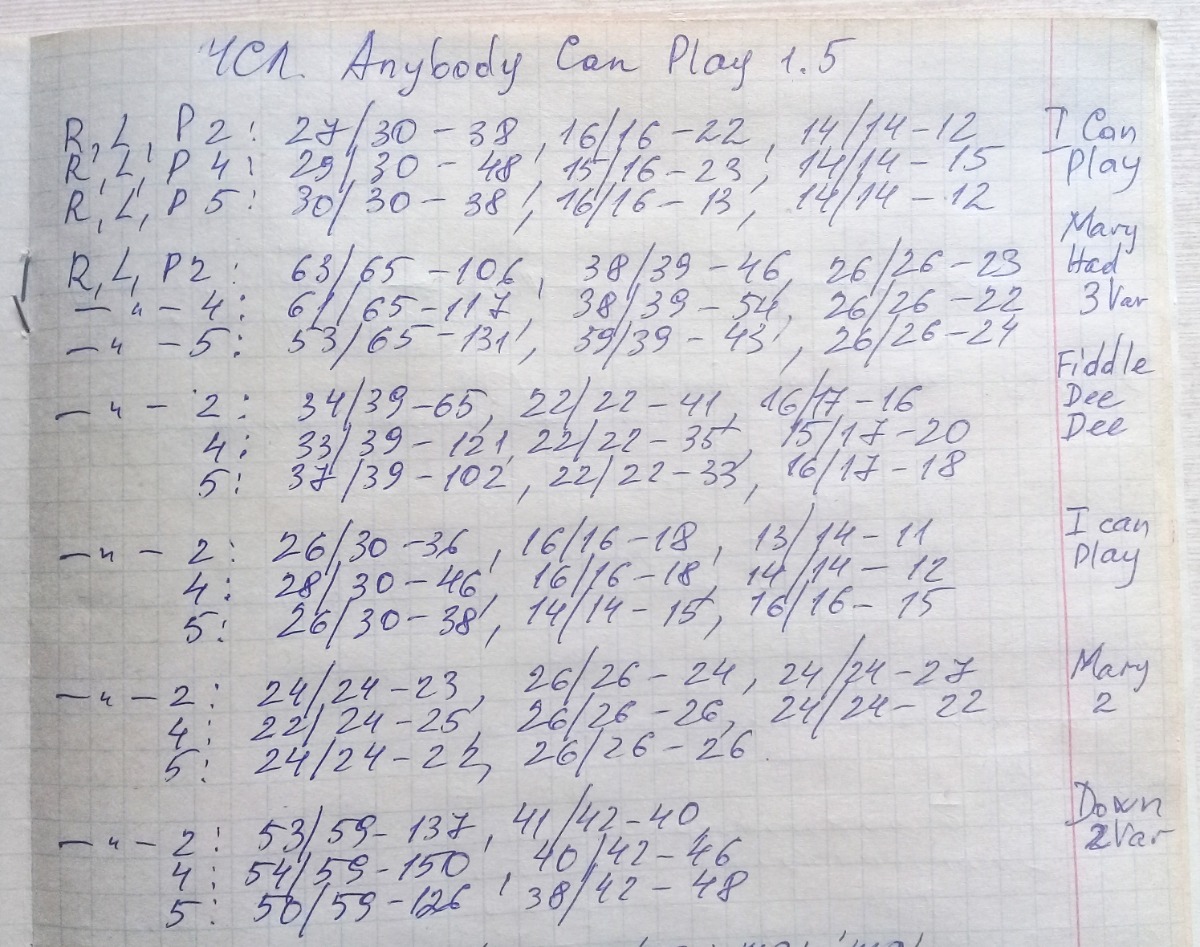 ЧСЛ. Anybody Can Play 1.5
R, L, P 2: 27/30 - 38, 16/16 - 22, 14/14 - 12 I Can
R, L, P 4: 29/30 - 48, 15/16 - 23, 14/14 - 15 Play
R, L, P 5: 30/30 - 38, 16/16 - 13, 14/14 - 12
Mary
R, L, P2: 63/65 - 106, 38/39 - 46, 26/26 - 23 Had
— " — 4: 61/65 - 117, 38/39 - 54, 26/26 - 22 3 Var
— " — 5: 53/65 - 131, 39/39 - 43, 26/26 - 24
Fiddle
— " — 2: 34/39 - 65, 22/22 - 41, 16/17 - 16 Dee
4: 33/39 - 121, 22/22 - 35, 15/17 - 20 Dee
5: 37/39 - 102, 22/22 - 33, 16/17 - 18
I can
— " — 2: 26/30 - 36, 16/16 - 18, 13/14 - 11 Play
4: 28/30 - 46, 16/16 - 18, 14/14 - 12
5: 26/30 - 38, 14/14 - 15, 16/16 - 15
— " — 2: 24/24 - 23, 26/26 - 24, 24/24 - 27 Mary
4: 22/24 - 25, 26/26 - 26, 24/24 - 22 2
5: 24/24 - 22, 26/26 - 26
Down
— " — 2: 53/59 - 137, 41/42 - 40 2Var
4: 54/59 - 150, 40/42 - 46
5: 50/59 - 126, 38/42 - 48